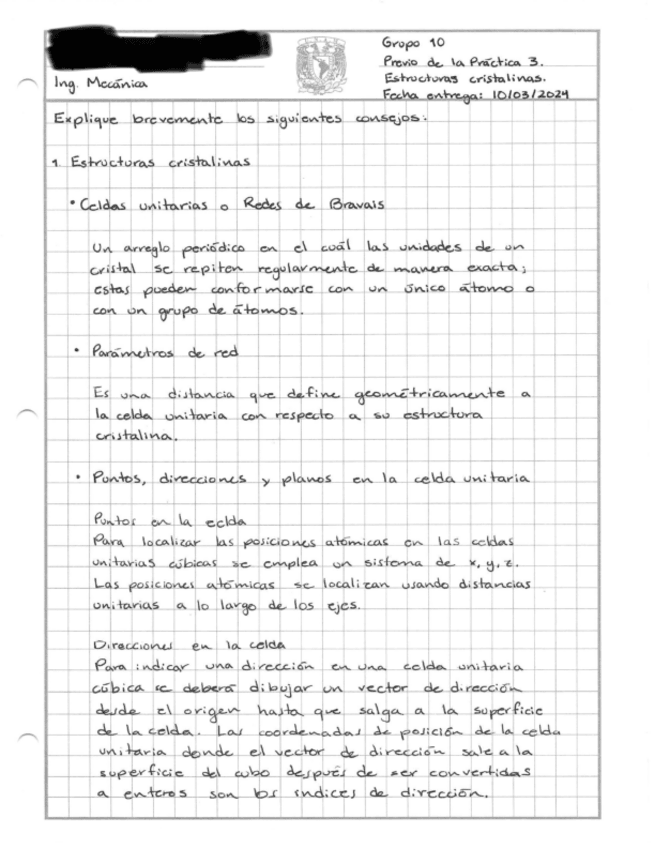 Grupo 10
Previo de la Práctica 3.
Ing. Mecánica
Estructuras cristalinas.
Fecha entrega: 10/03/2024
Explique brevemente los siguientes consejos:
1. Estructuras cristalinas
• Celdas unitarias o Redes de Bravais
Un arreglo periódico en el cuál las unidades de un
cristal se repiten regularmente de manera exacta;
estas pueden conformarse con un único átomo o
con un grupo de átomos.
• Parámetros de red
Es una distancia que define geométricamente a
la celda unitaria con respecto a su estructura
cristalina.
• Puntos, direcciones y planos en la celda unitaria
Puntos en la celda
Para localizar las posiciones atómicas en las celdas
unitarias cúbicas se emplea un sistema de x, y, z.
Las posiciones atómicas se localizan usando distancias
unitarias a lo largo de los ejes.
Direcciones en la celda
Para indicar una dirección en una celda unitaria
cúbica se deberá dibujar un vector de dirección
desde el origen hasta que salga a la superficie
de la celda. Las coordenadas de posición de la celda
unitaria donde el vector de dirección sale a la
superficie del cubo después de ser convertidas
a enteros son los índices de dirección.